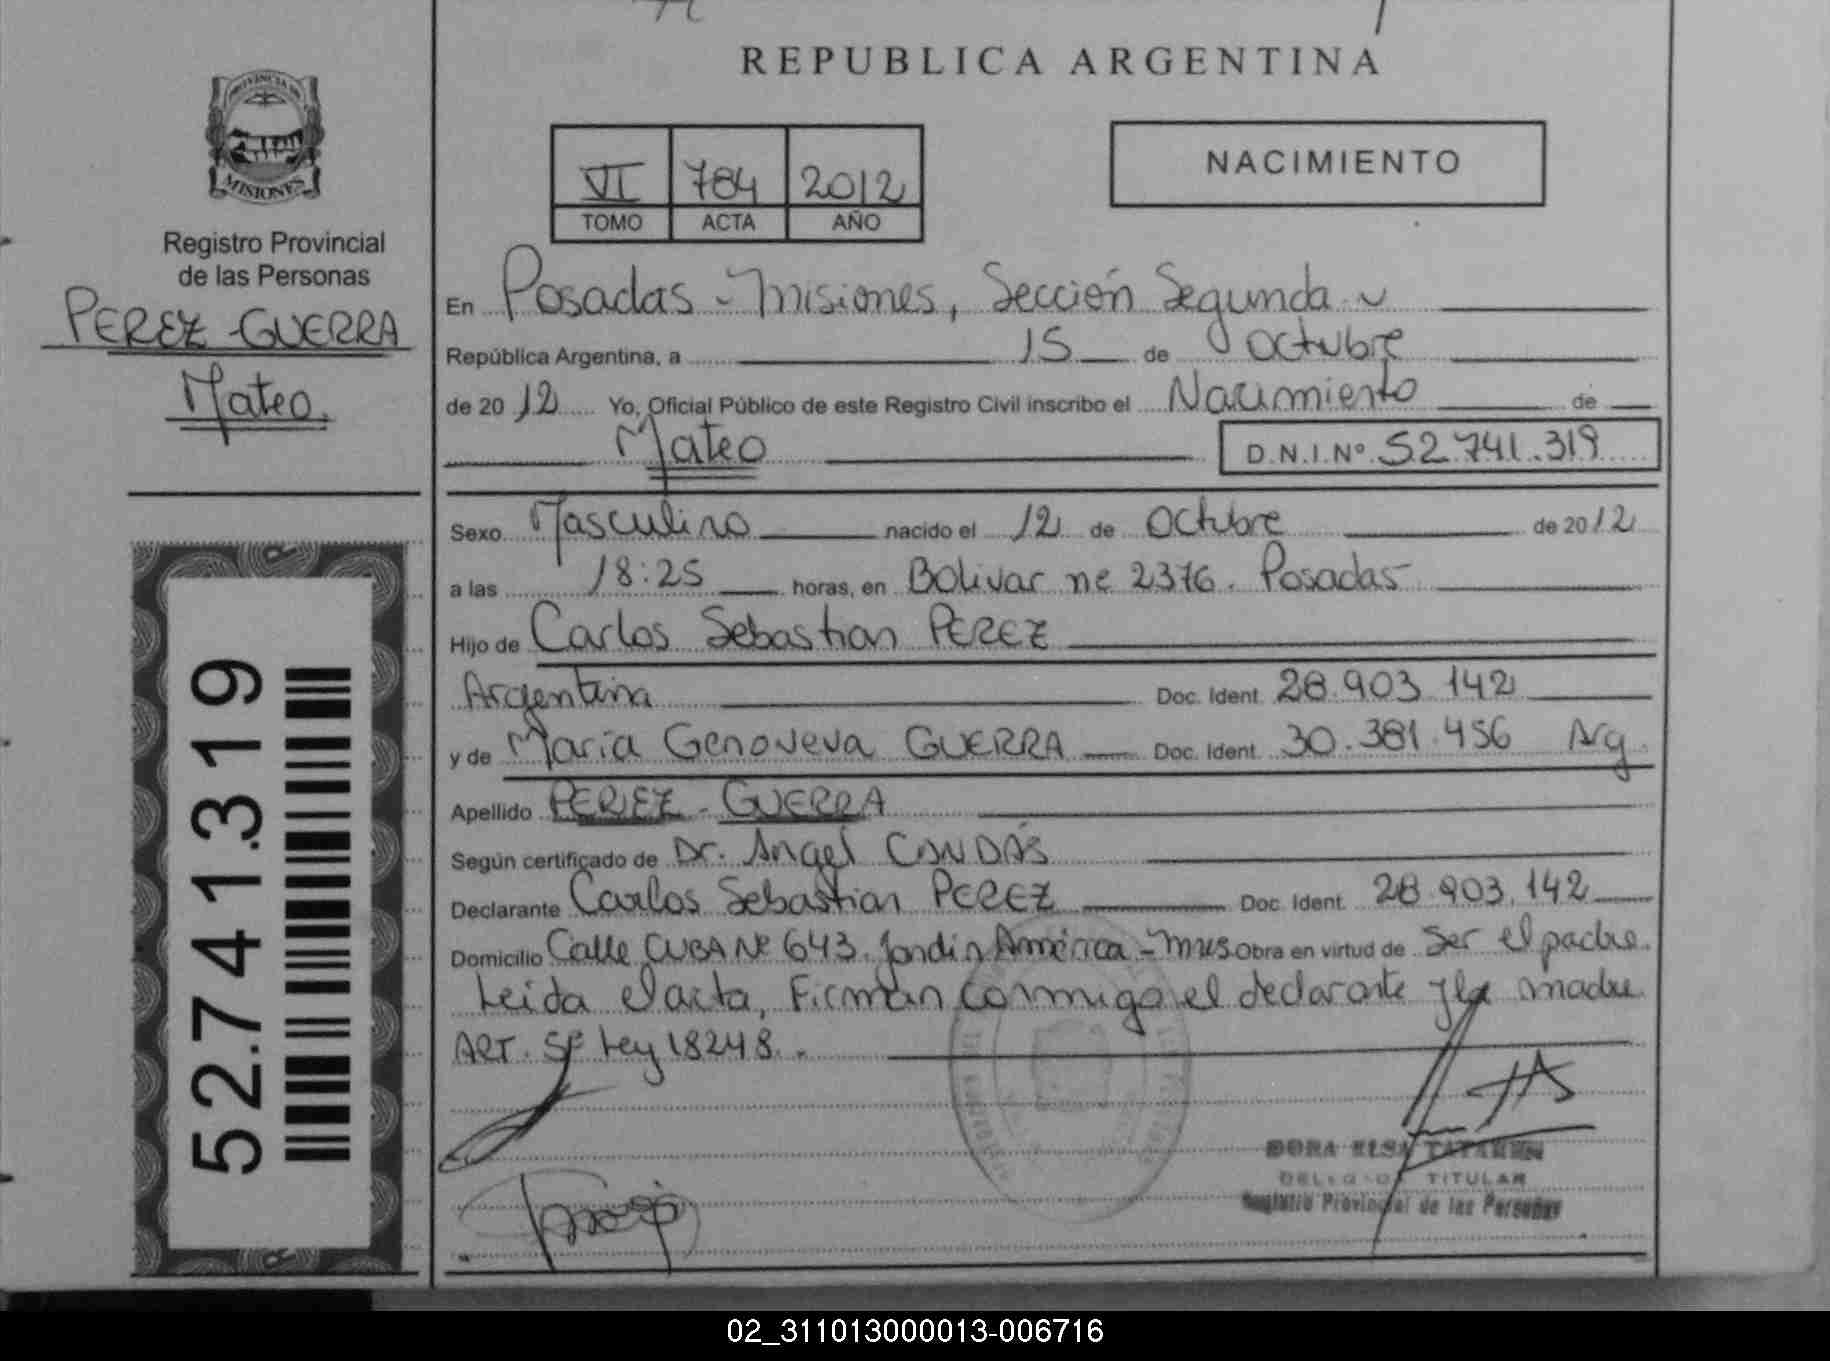 REPUBLICA ARGENTINA
PROVINCIA DE
MISIONES
Registro Provincial
de las Personas
PEREZ-GUERRA
Mateo.
52.741.319
VI 784 2012
TOMO ACTA AÑO
NACIMIENTO
En Posadas - Misiones, Sección Segunda
República Argentina, a 15 de Octubre
de 2012 Yo, Oficial Público de este Registro Civil inscribo el Nacimiento de
Mateo D.N.I.Nº 52.741.319
Sexo Masculino nacido el 12 de Octubre de 2012
a las 18:25 horas, en Bolivar nº 2376. Posadas
Hijo de Carlos Sebastian PEREZ
Argentina Doc. Ident. 28.903.142
y de Maria Genoveva GUERRA Doc. Ident. 30.381.456 Arg.
Apellido PEREZ - GUERRA
Según certificado de Dr. Angel
Declarante Carlos Sebastian PEREZ Doc. Ident. 28.903.142
Domicilio Calle CUBA Nº 643. Jardin América - Mnes Obra en virtud de Ser el padre.
Leida el acta, Firman conmigo el declarante y la madre
ART. 5º Ley 18248.
DORA ELSA
TITULAR
Registro Provincial de las Personas
02_311013000013-006716